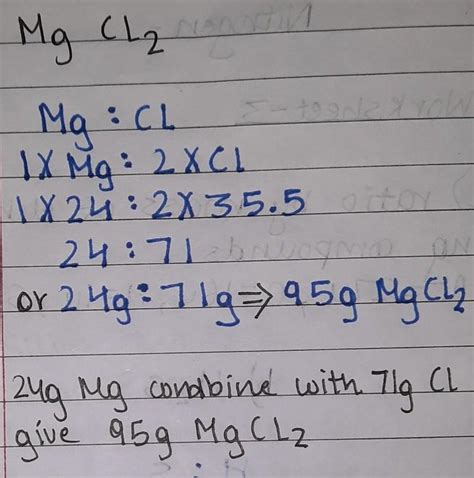 Mg CL2
Mg : CL
1 X Mg : 2 X CL
1 X 24 : 2 X 35.5
24 : 71
or 24g : 71g ⇒ 95g MgCL2
24g Mg condbind with 71g CL
give 95g MgCL2